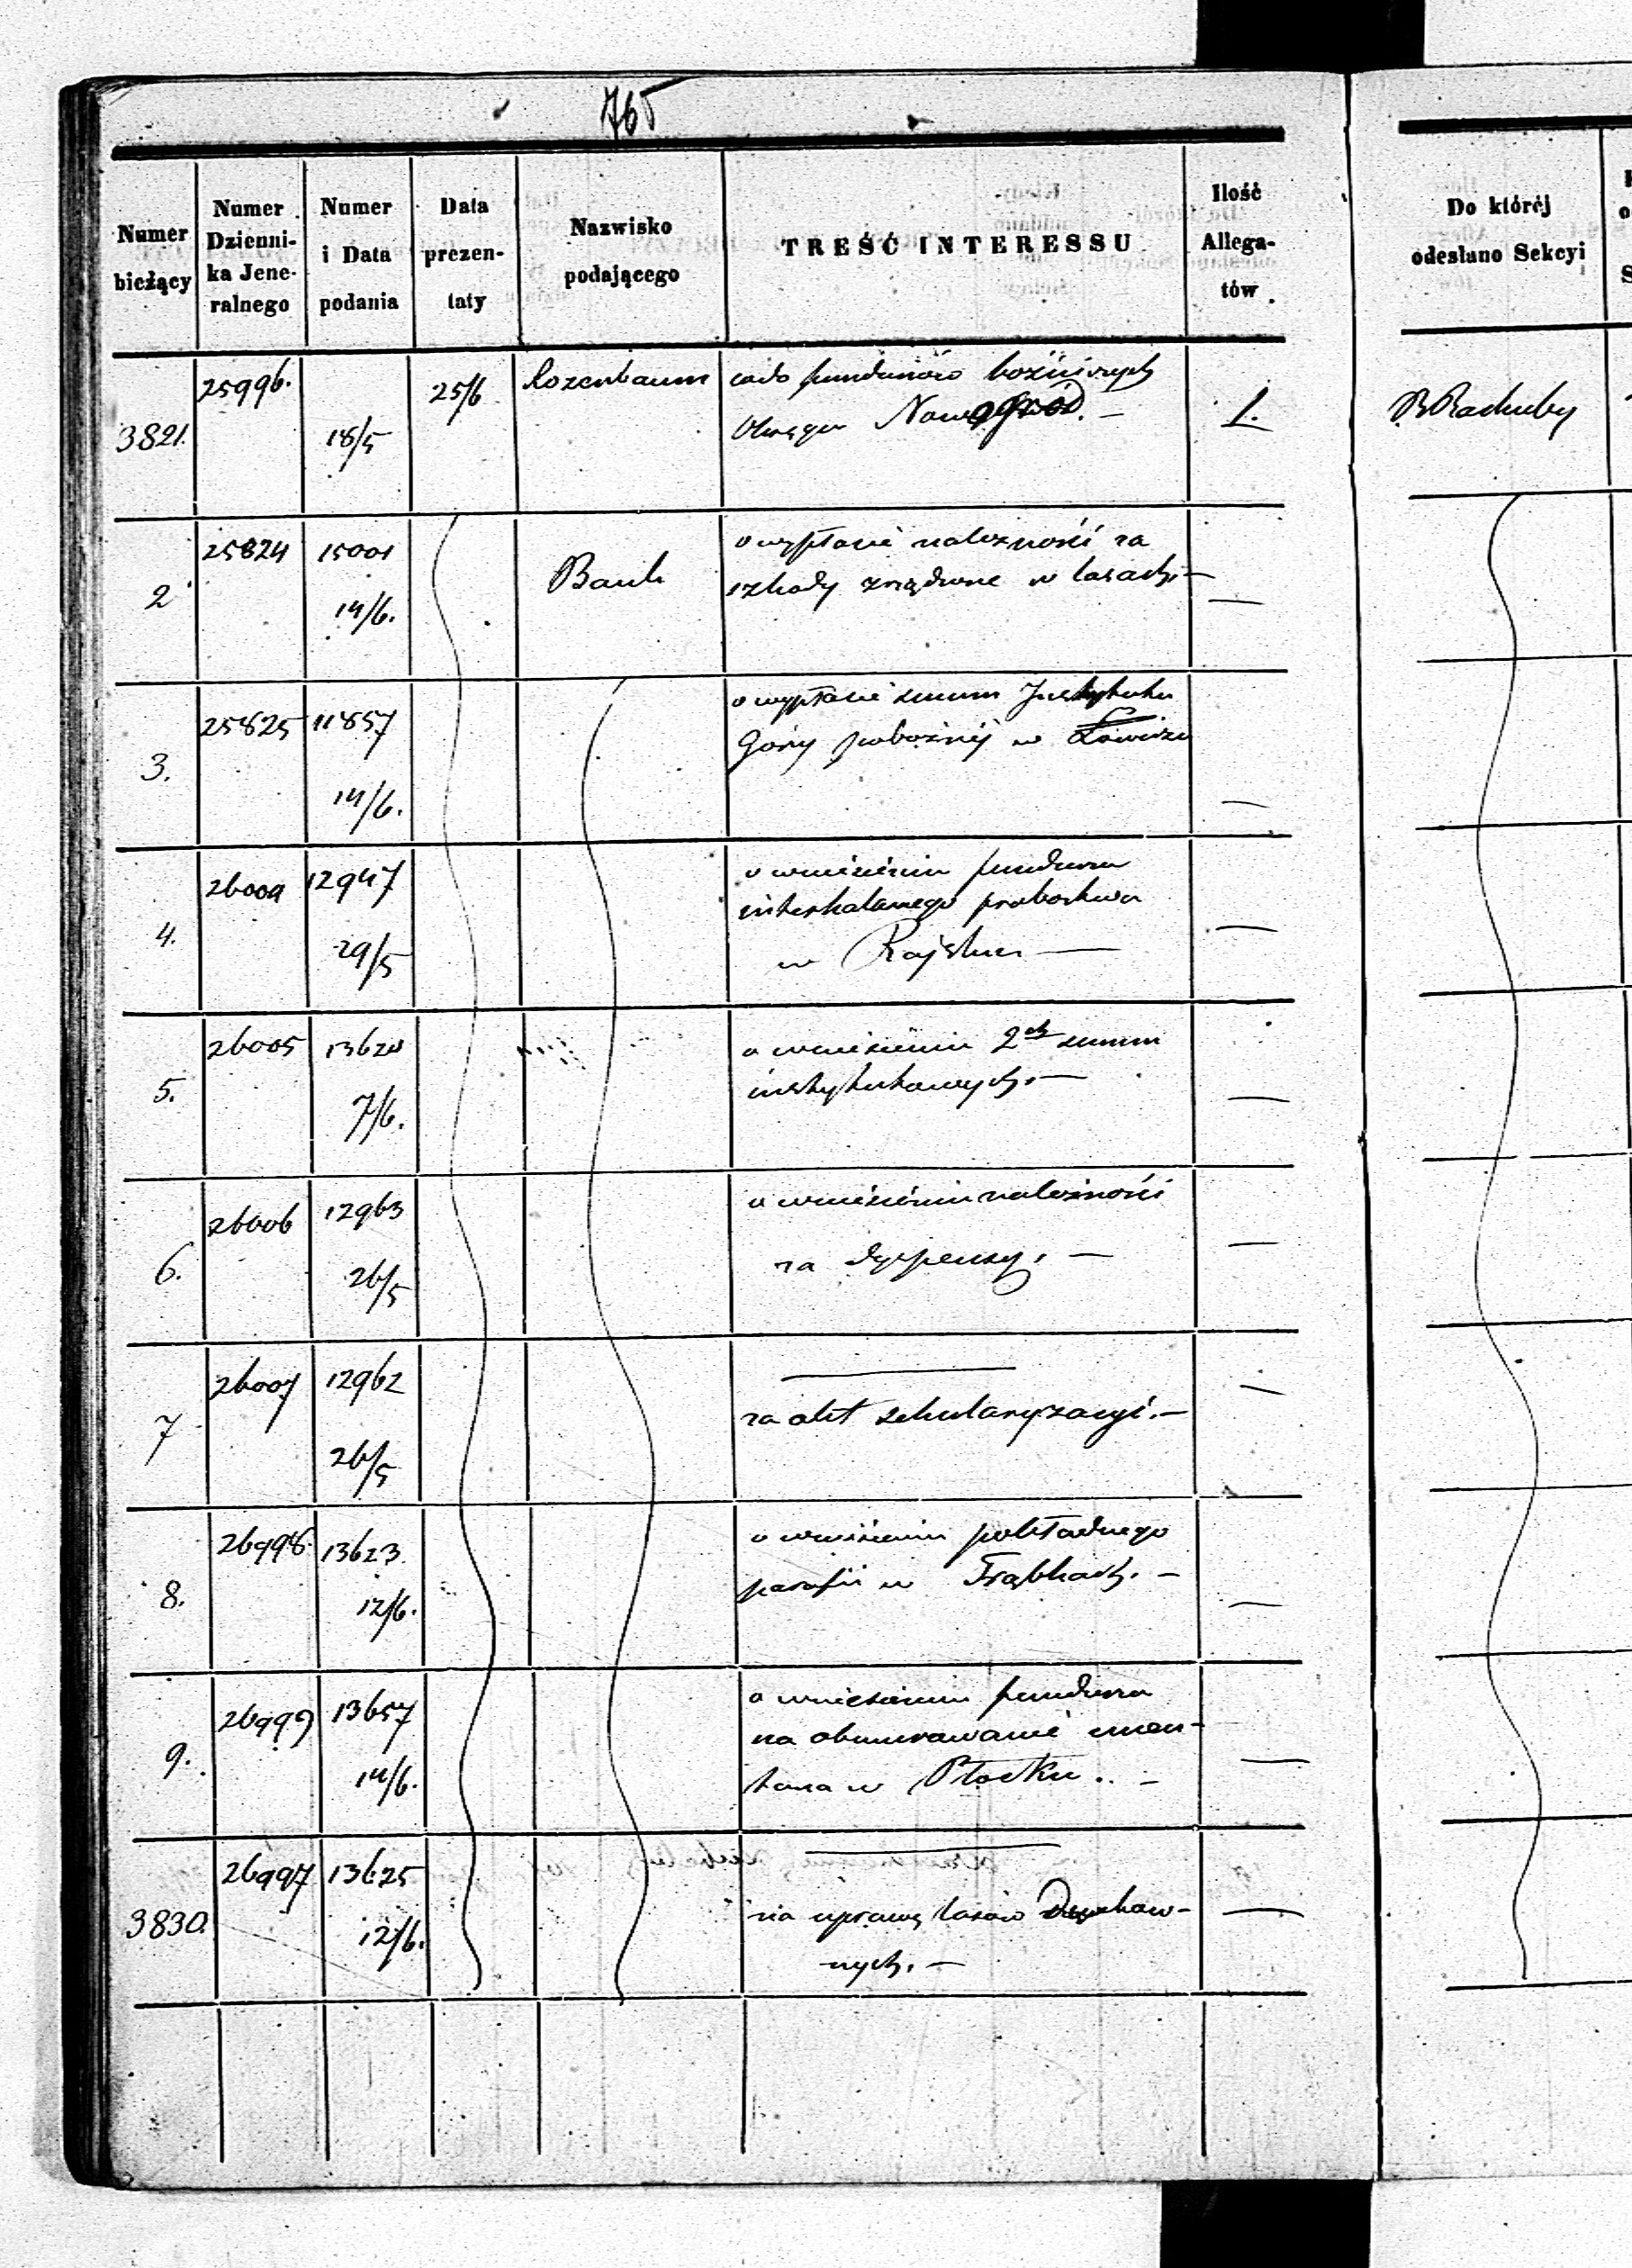 765
Numer bieżący
Numer Dzienni-ka Jene-ralnego
Numer i Data podania
Data prezen-taty
Nazwisko podającego
TREŚĆ INTERESSU
Ilość Allega-tów
Do któréj odesłano Sekcyi
3821. 25996. 18/5 25/6 Rozenbaum co do funduszów bożniczych 1.
Okręgu Nowogród. —
2 25824 15001 14/6. Bank o wypłacie należności za
szkody zrządzone w lasach. — —
3. 25825 11857 14/6. o wypłacie summ Instytutu
Góry pobożnéj w Łowiczu —
4. 12947 29/5 o wniesieniu funduszu
interkalarnego probostwa
w Rajsku — —
5. 26005 7/6. o wniesieniu 2ch summ
instytutowych. — —
6. 26006 12963 26/5 o wniesieniu należności
za dyspensy. — —
7 26007 12962 26/5 —
za akt sekularyzacyi. — —
8. 26998. 13623 12/6. o wniesieniu pokładnego
parafii w Trąbkach. — —
9. 26999 13657 14/6. o wniesieniu funduszu
na obmurowanie cmen-
tarza w Płocku. — —
3830. 26997 13625 12/6. —
na uprawę lasów Duchow-
nych. — —